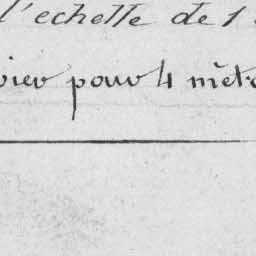 l'echelle de 1
pour 4 mètr